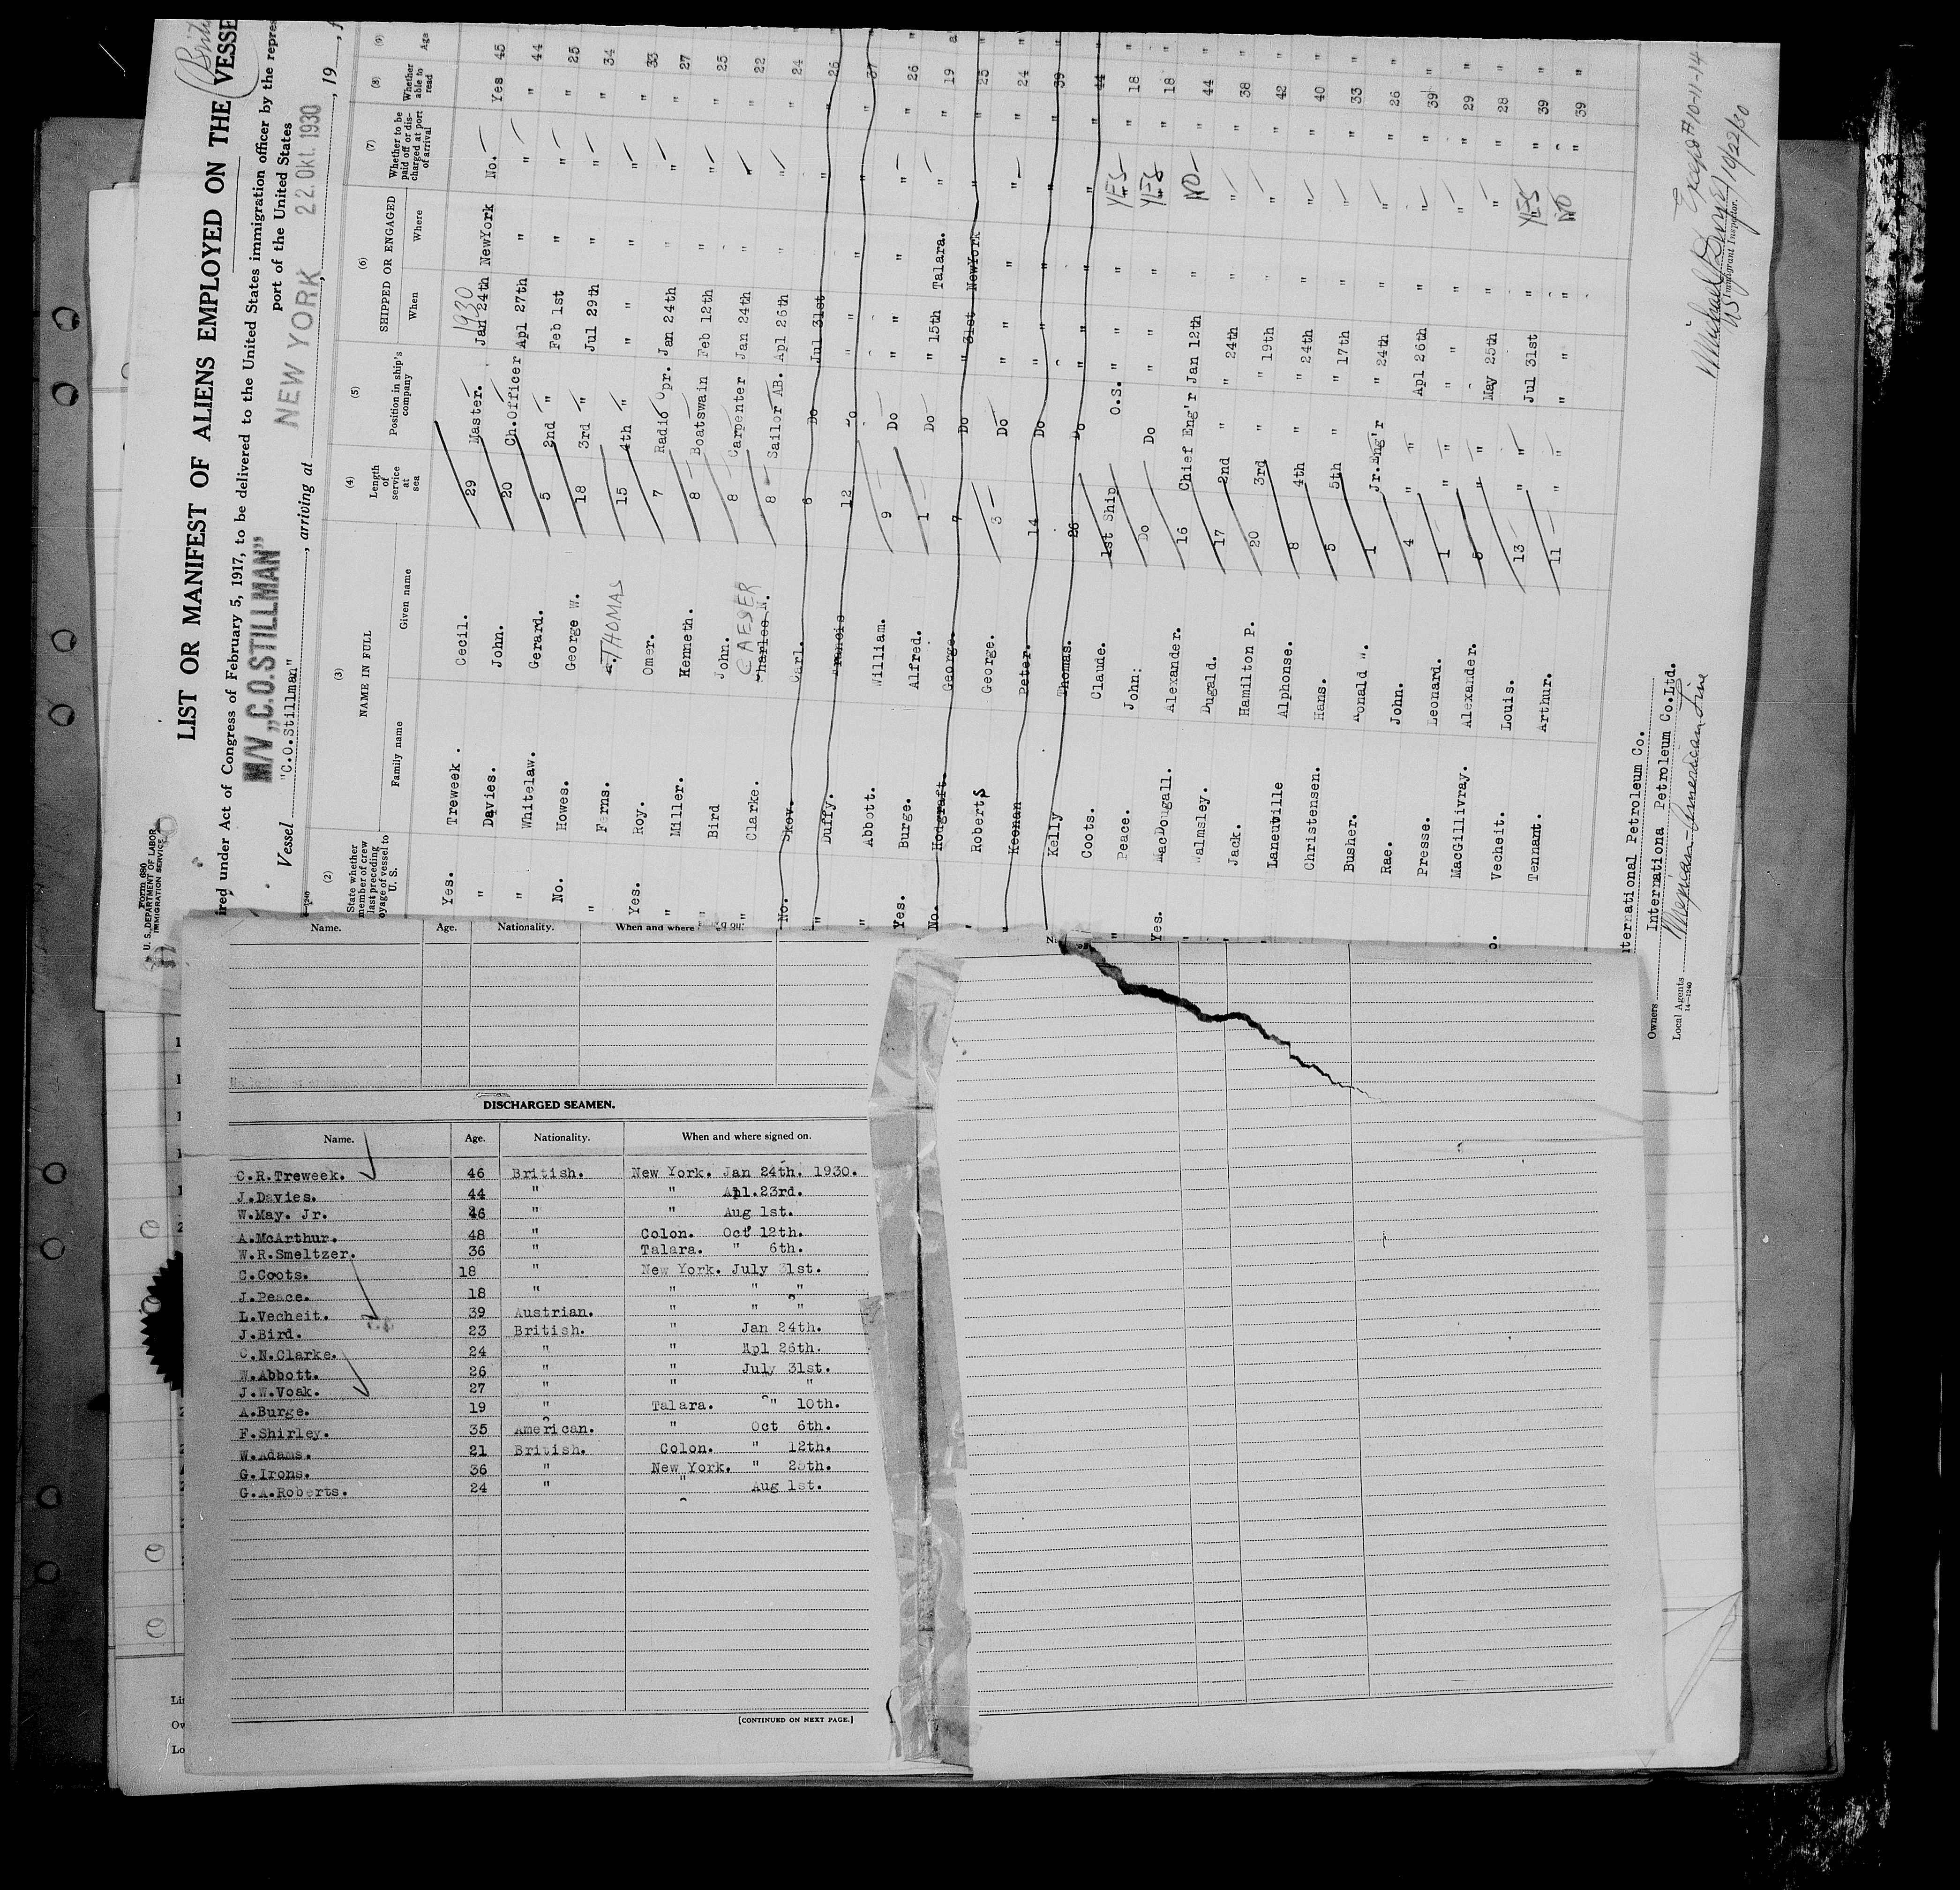 Form 680
U. S. DEPARTMENT OF LABOR
IMMIGRATION SERVICE
LIST OR MANIFEST OF ALIENS EMPLOYED ON THE VESSE
ired under Act of Congress of February 5, 1917, to be delivered to the United States immigration officer by the repre
port of the United States
M/V „C.O.STILLMAN"
NEW YORK 22.Okt.1930
Vessel "C.O.Stillman" , arriving at , 19
(2) (3) (4) (5) (6) (7) (8) (9)
State whether member of crew last preceding voyage of vessel to U. S.
NAME IN FULL
Family name Given name
Length of service at sea
Position in ship's company
SHIPPED OR ENGAGED
When Where
Whether to be paid off or discharged at port of arrival
Whether able to read
Age
1930
Yes. Treweek. Cecil. 29 Master. Jan 24th NewYork No. Yes 45
" Davies. John. 20 Ch.Officer Apl 27th " " " 44
" Whitelaw. Gerard. 5 2nd " Feb 1st " " " 25
No. Howes. George W. 18 3rd " Jul 29th " " " 34
" Ferns. THOMAS 15 4th " " " " " 33
Yes. Roy. Omer. 7 Radio Opr. Jan 24th " " " 27
" Miller. Kenneth. 8 Boatswain Feb 12th " " " 25
" Bird John. 8 Carpenter Jan 24th " " " 22
" Clarke. CAESER Charles N. 8 Sailor AB. Apl 26th " " " 24
No. Skov. Carl. 6 Do Jul 31st " " 26
" Duffy. Francis 12 Do " " " " 37
" Abbott. William. 9 Do " " " " 26
Yes. Burge. Alfred. 1 Do " 15th Talara. " " 19
No. Hodgraft. George. 7 Do " 31st NewYork " " 25
" Roberts George. 3 Do " " " " 24
" Keenan Peter. 14 Do " " " " 39
Kelly Thomas. 26 Do " " " " 44
" Coots. Claude. 1st Ship O.S. " " YES " 18
Yes. Peace. John. Do Do " " YES " 18
" MacDougall. Alexander. 16 Chief Eng'r Jan 12th " NO " 44
" Walmsley. Dugald. 17 2nd " " 24th " " " 38
" Jack. Hamilton P. 20 3rd " " 19th " " " 42
Laneuville Alphonse. 8 4th " " 24th " " " 40
Christensen. Hans. 5 5th " " 17th " " " 33
Busher. Ronald W. 1 Jr.Eng'r " 24th " " " 26
Rae. John. 4 " " Apl 26th " " " 39
Presse. Leonard. 1 " " " " " " 29
MacGillivray. Alexander. 5 " May 25th " " " 28
Vecheit. Louis. 13 " " Jul 31st " YES " 39
Tennant. Arthur. 11 " " " " NO " 39
nternational Petroleum Co.
Owners International Petroleum Co.Ltd.
Local Agents Mexican-American Line
14—1240
Immigrant Inspector.
10/22/30
10-11-14
Name. Age. Nationality. When and where
DISCHARGED SEAMEN.
Name. Age. Nationality. When and where signed on.
C.R.Treweek. 46 British. New York. Jan 24th. 1930.
J.Davies. 44 " " Apl.23rd.
W.May. Jr. 46 " " Aug 1st.
A.McArthur. 48 " Colon. Oct 12th.
W.R.Smeltzer. 36 " Talara. " 6th.
C.Coots. 18 " New York. July 31st.
J.Peace. 18 " " " "
L.Vecheit. 39 Austrian. " " "
J.Bird. 23 British. " Jan 24th.
C.N.Clarke. 24 " " Apl 26th.
W.Abbott. 26 " " July 31st.
J.W.Voak. 27 " " "
A.Burge. 19 " Talara. " 10th.
F.Shirley. 35 American. " Oct 6th.
W.Adams. 21 British. Colon. " 12th.
G.Irons. 36 " New York. " 25th.
G.A.Roberts. 24 " " Aug 1st.
[CONTINUED ON NEXT PAGE.]